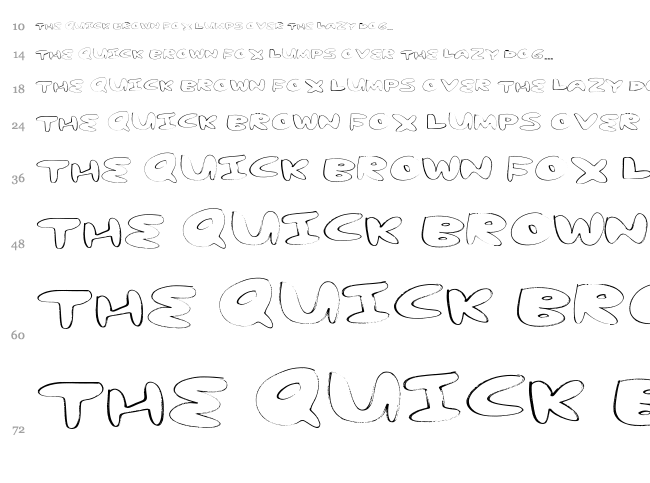 10 THE QUICK BROWN FOX LUMPS OVER THE LAZY DOG...
14 THE QUICK BROWN FOX LUMPS OVER THE LAZY DOG...
18 THE QUICK BROWN FOX LUMPS OVER THE LAZY DO
24 THE QUICK BROWN FOX LUMPS OVER
36 THE QUICK BROWN FOX L
48 THE QUICK BROWN
60 THE QUICK BRO
72 THE QUICK B